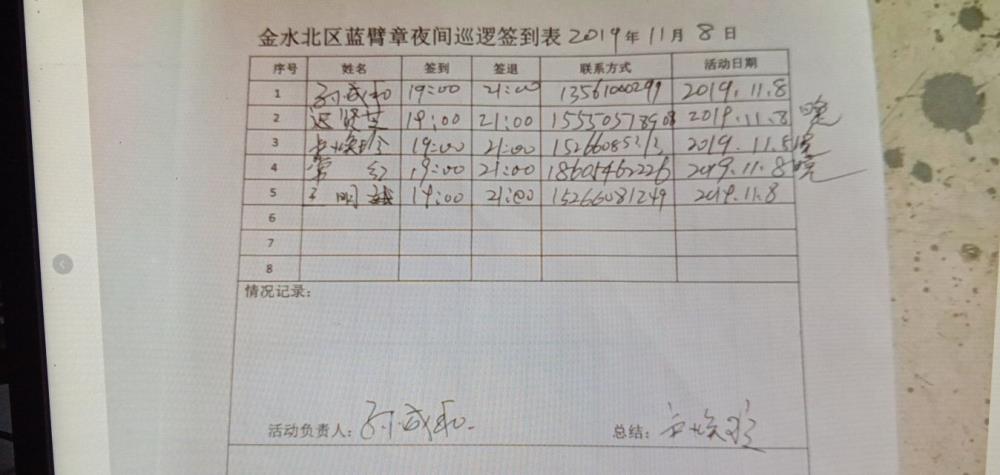 金水北区蓝臂章夜间巡逻签到表 2019年11月8日
序号 姓名 签到 签退 联系方式 活动日期
1 孙成和 19:00 21:00 13561000299 2019.11.8
2 迟贤英 19:00 21:00 2019.11.8
3 19:00 21:00 2019.11.8
4 常红 19:00 21:00 18605462226 2019.11.8
5 王明 19:00 21:00 15266081249 2019.11.8
6
7
8
情况记录:
活动负责人: 孙成和 总结: